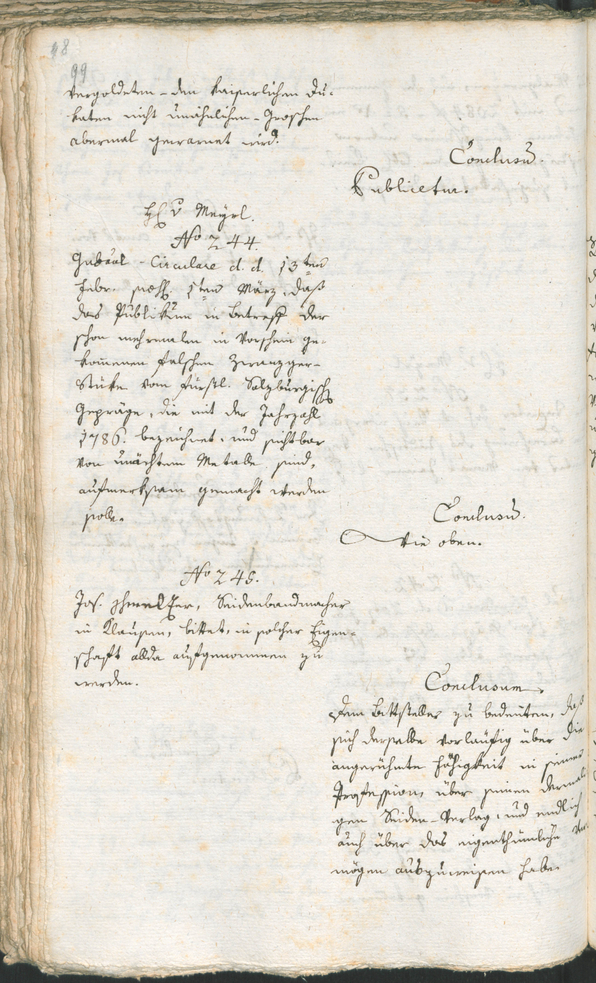 99
vergoldeten - den kaiserlichen Du:
katen nicht unähnlichen - Groschen
abermal gewarnet wird.
Conclusũ.
Publicetur.
H v Mayrl.
No 244.
Gubr̃al - Circulare d. d. 13ten
Febr. 1ten März, daß
das Publikũm in Betreff der
schon mehremalen in Vorschein ge-
kom̃enen falschen Zwanziger-
Stüke vom fürstl. Salzburgisch
Gepräge, die mit der Jahrzahl
1786. bezeichnet, und sichtbar
von unächtem Metalle sind,
aufmerksam gemacht werden
solle.
Conclusũ.
Wie oben.
No 245.
Jos. Seidenbandmacher
in Klausen, bittet, in solcher Eigen-
schaft allda aufgenommen zu
werden.
Conclusum
Dem Bittsteller zu bedeuten, daß
sich derselbe vorläufig über die
angerühmte Fähigkeit in seiner
Profession, über seinen dermali
gen Seiden-Verlag, und endlich
auch über das eigenthümliche Ver
mögen auszuweisen habe.